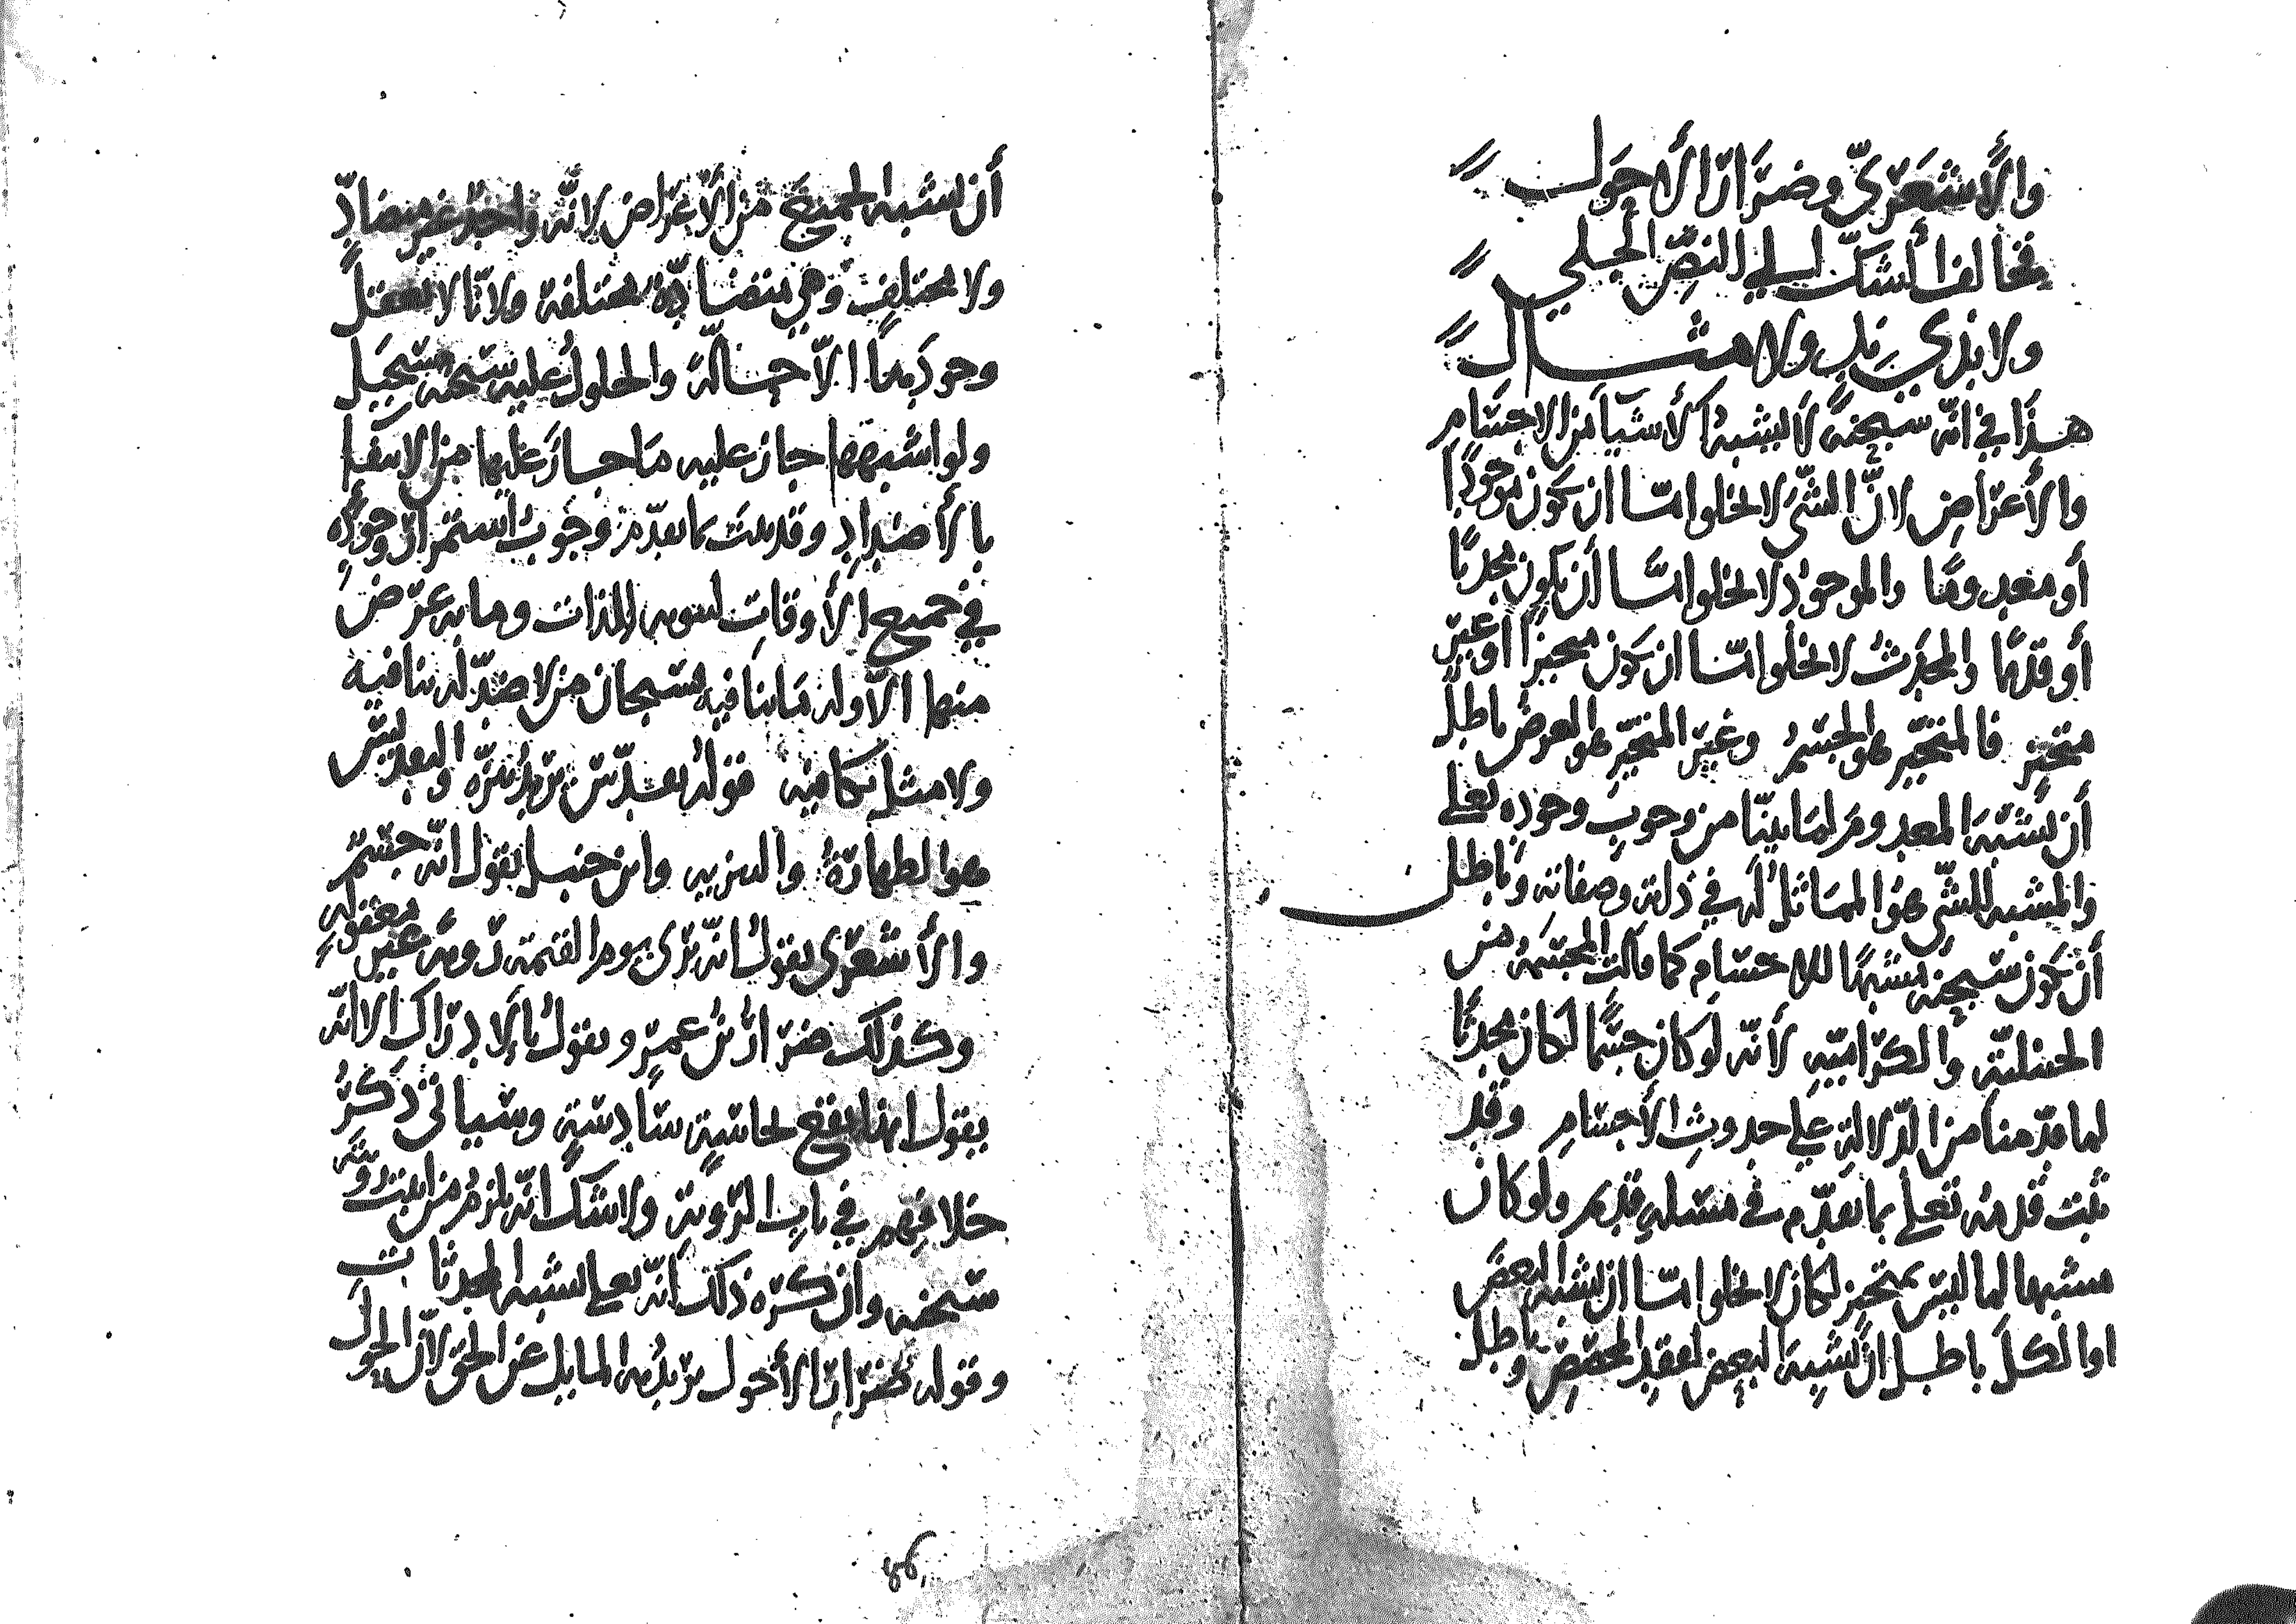 والأشعري وضرار الأحول
مخالفا شك إلى النص الجلي
ولا بذي ند ولا مثال
هذا في انه سبحنه لا يشبه الأشيا من الاجسام
والأعراض لان الشي لا يخلوا امّا ان يكون موجودًا
أو معدومًا والموجود لا يخلوا امّا أن يكون محدثًا
أو قديمًا والمحدث لا يخلوا امّا ان يكون متحيزًا أو غير
متحيز فالمتحيّز هو الجسم وغير المتحيّز هو العرض باطل
أن يشبه المعدوم لما بينّا من وجوب وجوده تعلى
والمشبه للشي هو المماثل له في ذاته وصفاته وباطل
أن يكون سبحنه مشبهًا للاجسام كما قالت المجسمة من
الحنبلية والكرامية لأنه لو كان جسمًا لكان محدثًا
لما قدّمنا من الدّلالة على حدوث الأجسام وقد
ثبت قدمه تعلى بما تقدّم في مسلة قديم ولو كان
مشبها لما ليس بمتحيز لكان لا يخلوا امّا ان يشبه البعض
او الكل باطل أن يشبه البعض لفقد المخصص وباطل
أن يشبه الجميع من الأعراض لانه واحد غير متضادّ
ولا مختلف وهي متضادّة مختلفة ولانا لا نعقل
وجودها الاّ حالّة والحلول عليه سبحنه مستحيل
ولو اشبهها جاز عليه ما جاز عليها من الانتفا
بالأضداد وقد ثبت بما تقدّم وجوب استمرار وجوده
في جميع الأوقات للذات وما به عرض
منها الاّ وله ما ينافيه فسبحان من لا ضدّ له ينافيه
ولا مثل يكافيه قوله يريد والتقديس
هو الطهارة والتنزيه وابن حنبل يقول انّه جسم
والأشعري يقول انّه يرى يوم القيمة رؤية غير معقولة
وكذلك ضرار بن عمرو ويقول بالإدراك الا انّه
يقول انها تقع بحاسة سادسة وسياتي ذكر
خلافهم في باب الرؤية ولا شك انّه يلزم من اثبت رؤيته
سبحنه وان كره ذلك انّه تعلى يشبه المحدثات
وقوله ضرار الأحول يريد به المايل عن الحق لأن الحول